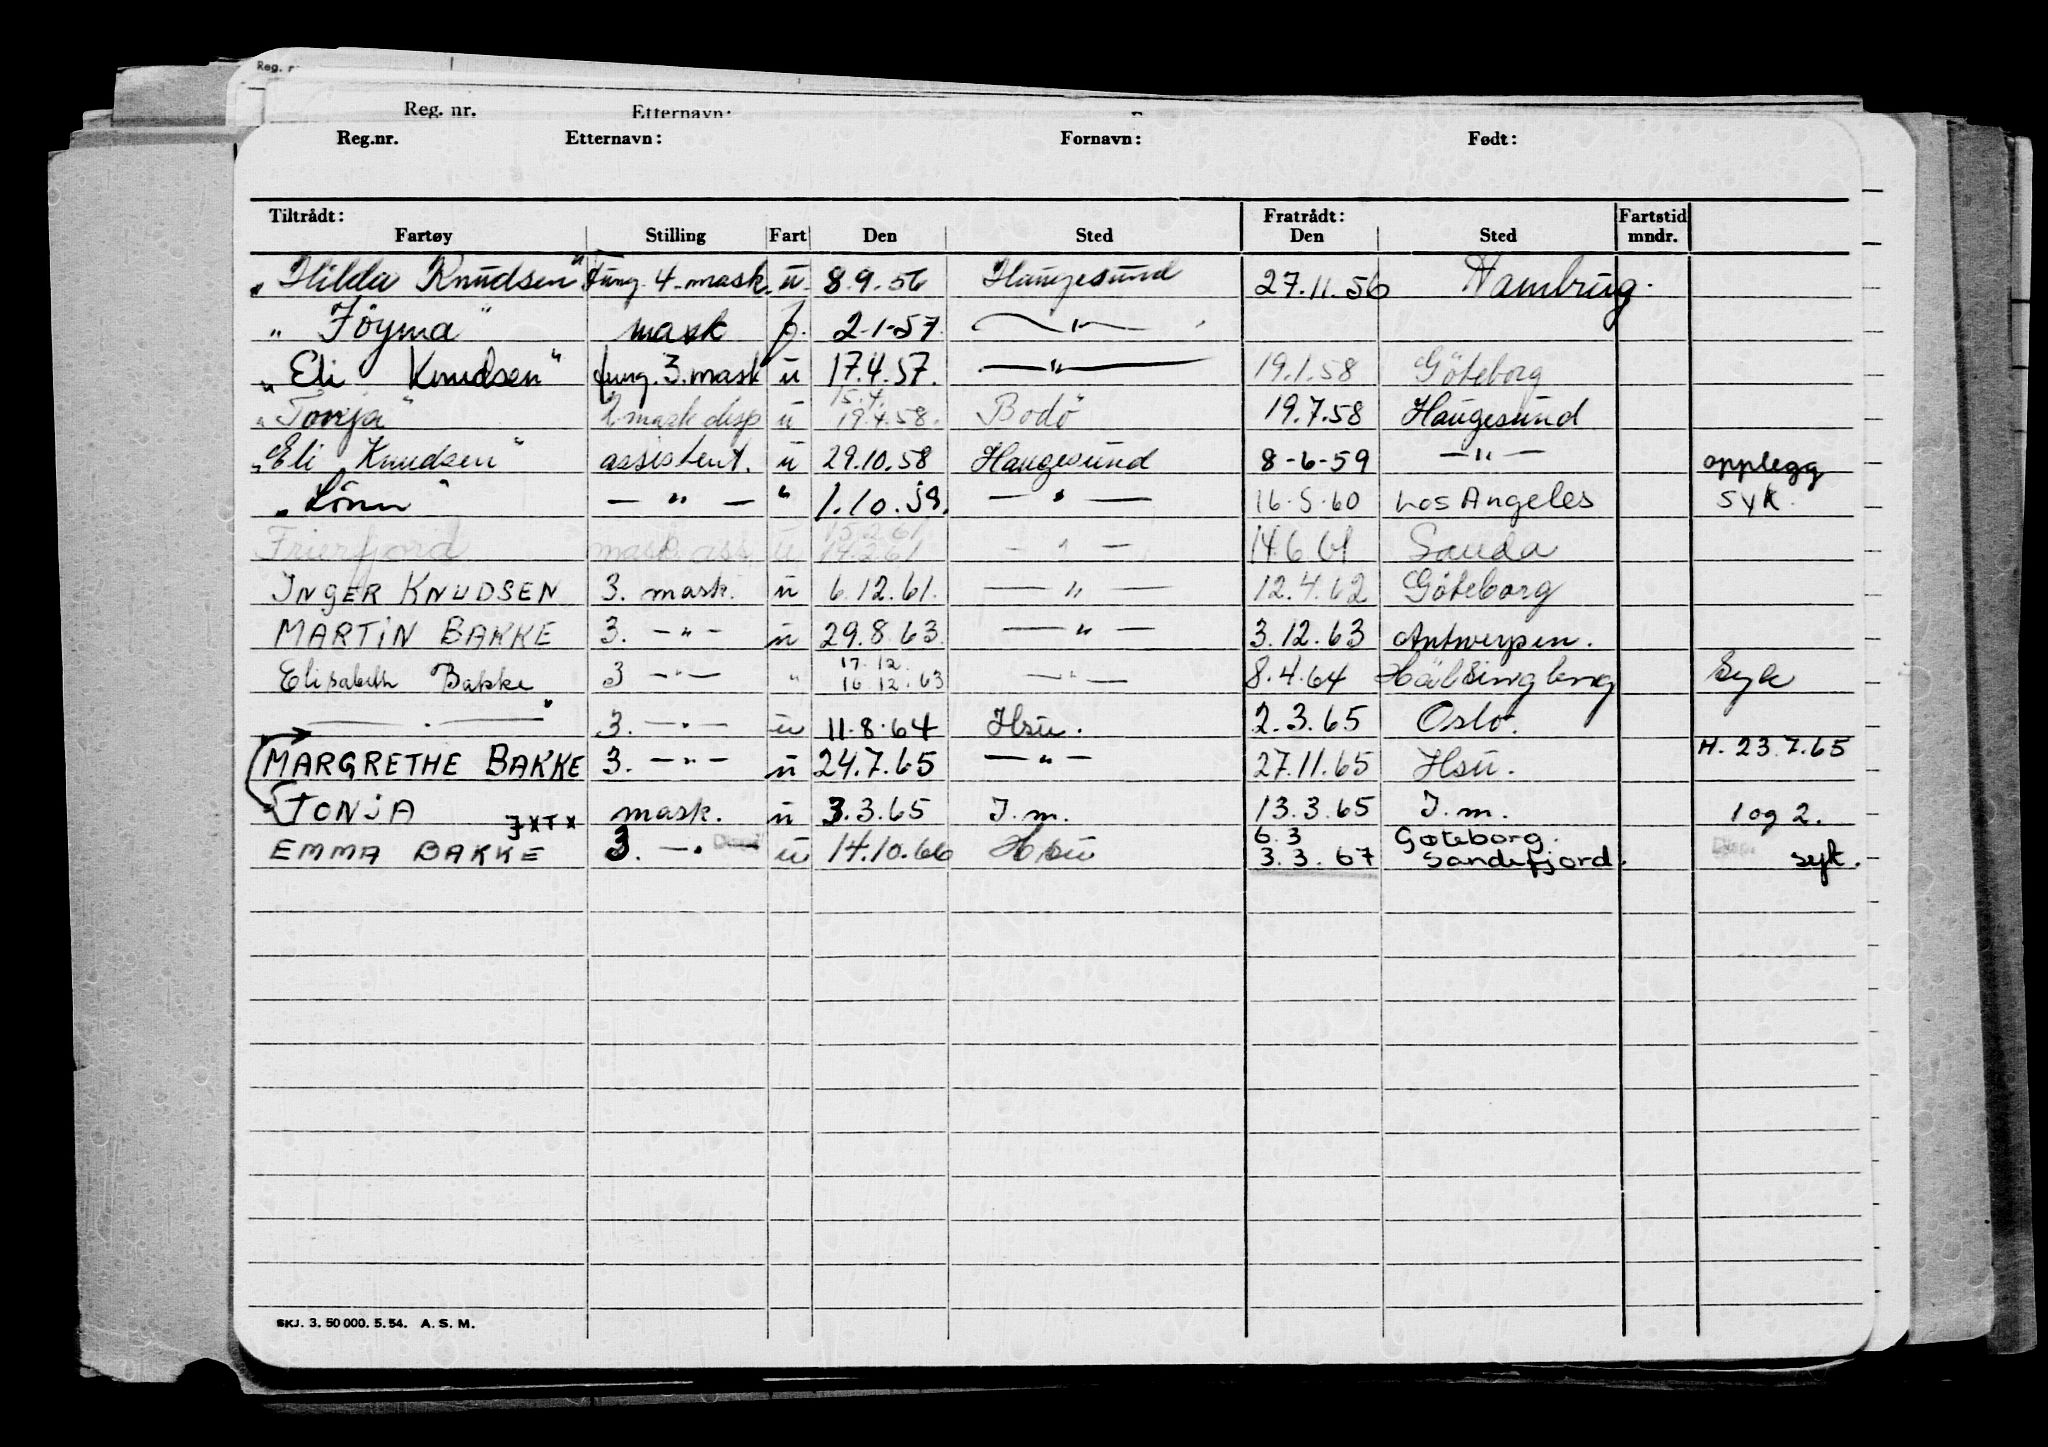 Reg. n
Reg. nr. Etternavn:
Reg.nr. Etternavn: Fornavn: Født:
Tiltrådt: Fratrådt: Fartstid
Fartøy Stilling Fart Den Sted Den Sted mndr.
"Hilda Knudsen" fung. 4. mask. u. 8.9.56 Haugesund 27.11.56 Hambrug.
" Föyma " mask f. 2-1-57. — " —
"Eli Knudsen" fung. 3. mask u 17.4.57. — " — 19.1.58 Göteborg
15.4.
"Tonja" 2. mask disp u 19.4.58. Bodö 19.7.58 Haugesund
"Eli Knudsen" assistent. u 29.10.58 Haugesund 8-6-59 — " — opplegg
"Lönn" — " — " 1.10.59. — " — 16.5.60 Los Angeles syk.
15.2.61
Frierfjord mask. ass u 14.2.61 — " — 14.6.61 Sauda
INGER KNUDSEN 3. mask. u 6.12.61. — " — 12.4.62 Göteborg
MARTIN BAKKE 3. — " — u 29.8.63. — " — 3.12.63 Antwerpen.
17.12.
Elisabeth Bakke 3 — " — " 16.12.63 — " — 8.4.64 Hälsingborg Syk
— " — 3. — " — u 11.8.64 Hsu. 2.3.65 Oslo.
MARGRETHE BAKKE 3. — " — u 24.7.65 — " — 27.11.65 Hsu. H. 23.7.65
TONJA JXTX mask. u 3.3.65 I.m. 13.3.65 I.m. 1 og 2.
6.3 Gøteborg.
EMMA BAKKE 3. — " u 14.10.66 Hsu 3.3.67 Sandefjord. syk.
SKJ. 3. 50 000. 5. 54. A. S. M.